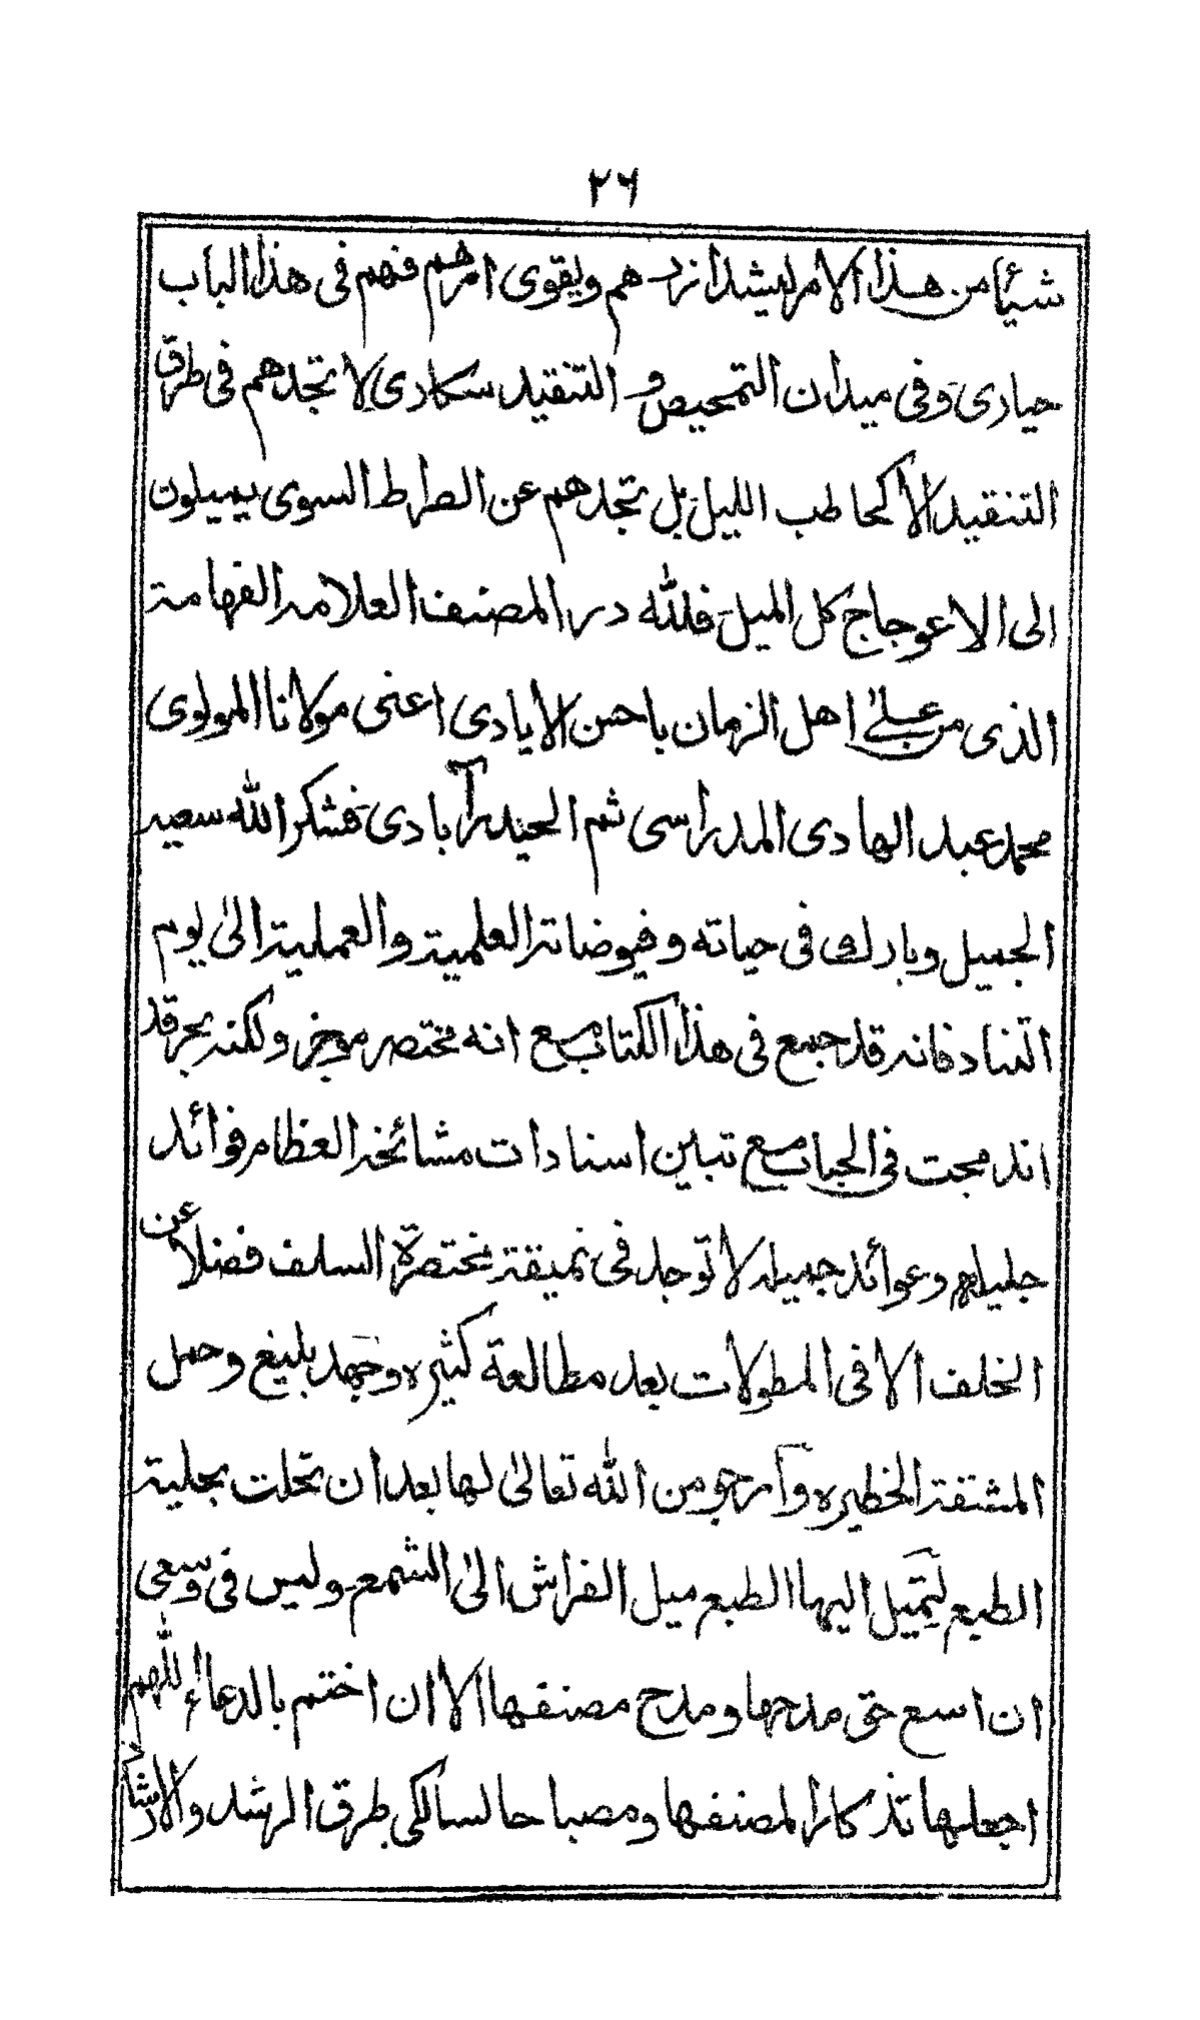 ٢٦
شيئا من هذا الامر ليشد ازرهم ويقوى امرهم فهم فى هذا الباب
حيارى وفى ميدان التمحيص والتنقيد سكارى لا تجدهم فى طرق
التنقيد الا كحاطب الليل بل تجدهم عن الصراط السوى يميلون
الى الاعوجاج كل الميل فلله در المصنف العلامه الفهامة
الذى من على اهل الزمان باحسن الايادى اعنى مولانا المولوى
محمد عبد الهادى المدراسى ثم الحيدرآبادى فشكر الله سعيه
الجميل وبارك فى حياته وفيوضاته العلمية والعملية الىٰ يوم
التناد فانه قد جمع فى هذا الكتاب مع انه مختصر موجز ولكنه بحر قد
اندمجت فى الجباب مع تبيين اسنادات مشائخه العظام فوائد
جليله وعوائد جميله لا توجد فى نميقة مختصرة السلف فضلا عن
الخلف الا فى المطولات بعد مطالعة كثيره وجهد بليغ وحمل
المشقة الخطيره وآرجو من الله تعالىٰ لها بعد ان تحلت بحلية
الطبع لتميل اليها الطبع ميل الفراش الىٰ الشمع وليس فى وسعى
ان اسع حق مدحها ومدح مصنفها الا ان اختم بالدعاء اللهم
اجعلها تذكارا لمصنفها ومصباحا لسالكى طرق الرشد والارشاد